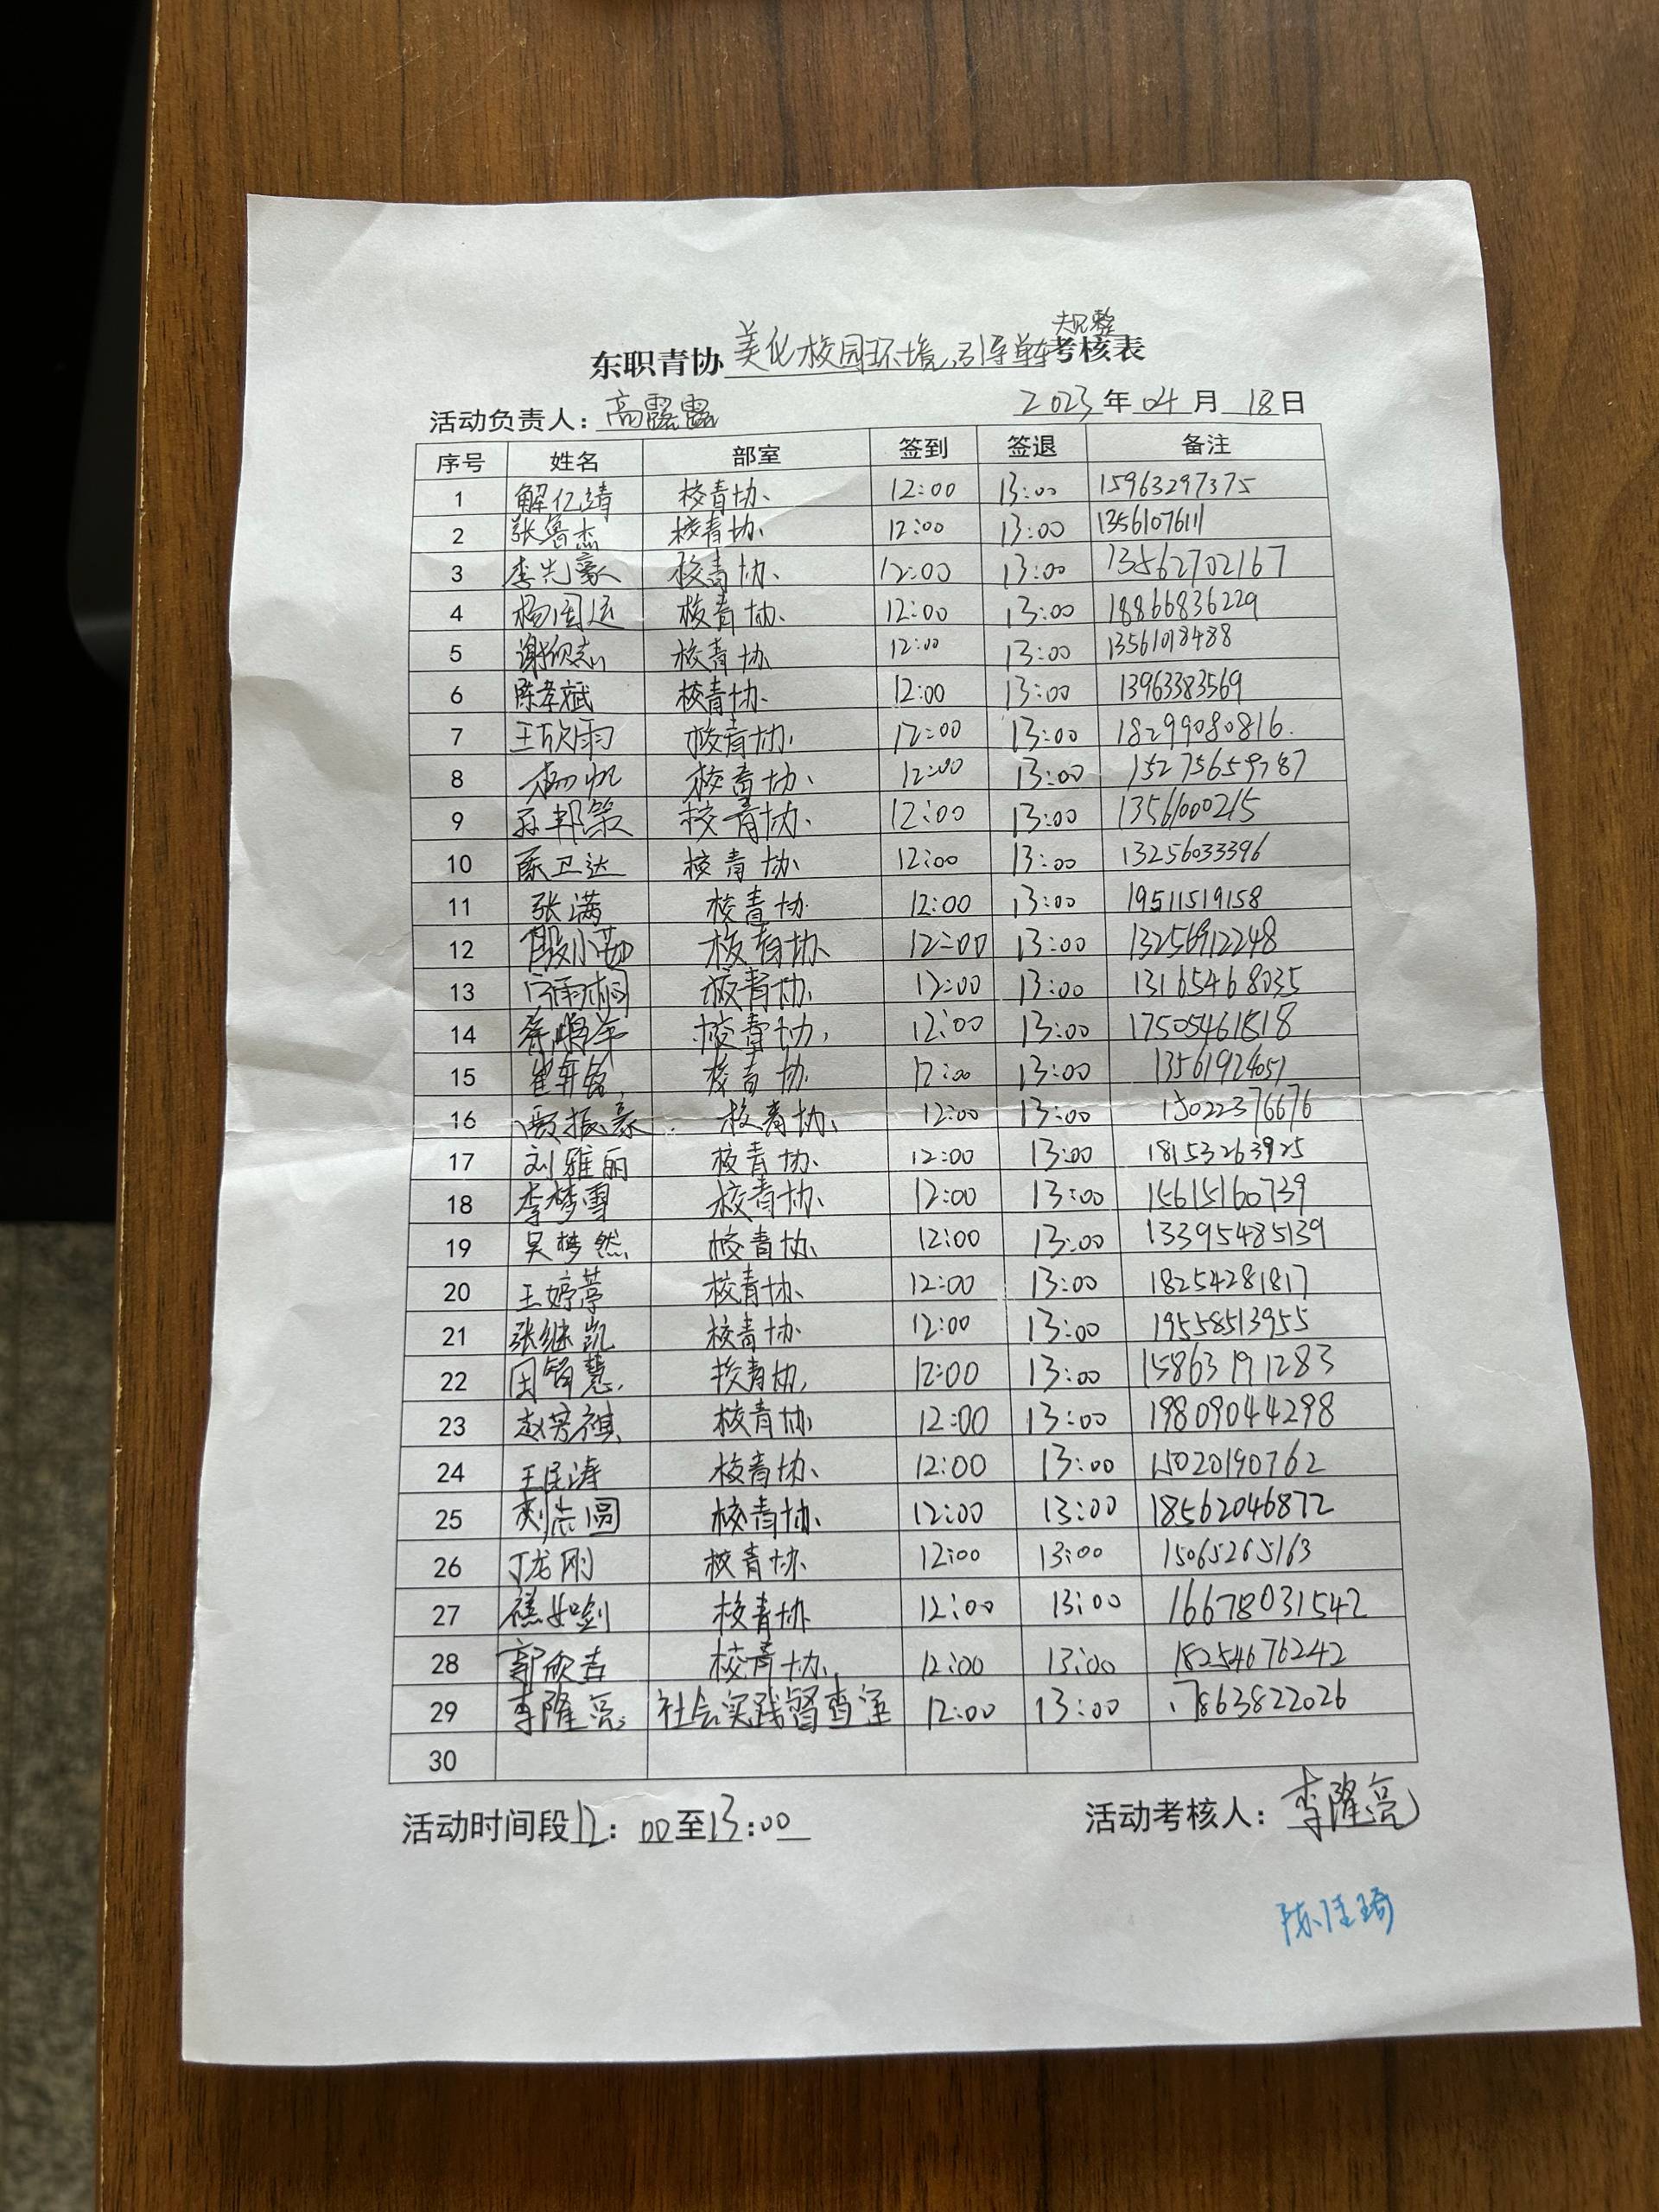 规整
东职青协 美化校园环境,引导单车考核表
活动负责人：高露露 2023年04月18日
序号 姓名 部室 签到 签退 备注
1 解亿靖 校青协 12:00 13:00 15963297375
2 张鲁杰 校青协 12:00 13:00 1356107611
3 李先豪 校青协 12:00 13:00 13562702167
4 杨国运 校青协 12:00 13:00 18866836229
5 谢欣志 校青协 12:00 13:00 13561018488
6 陈孝斌 校青协 12:00 13:00 13963383569
7 王欣雨 校青协 12:00 13:00 18299080816
8 杨帆 校青协 12:00 13:00 15275659787
9 邦策 校青协 12:00 13:00 13561000215
10 陈卫达 校青协 12:00 13:00 13256033396
11 张满 校青协 12:00 13:00 19511519158
12 殷小茹 校青协 12:00 13:00 13256912248
13 雨桐 校青协 12:00 13:00 13165468035
14 校青协 12:00 13:00 17505461518
15 崔轩铭 校青协 12:00 13:00 13561924051
16 贾振豪 校青协 12:00 13:00 15022376676
17 刘雅丽 校青协 12:00 13:00 18153263925
18 李梦雪 校青协 12:00 13:00 15615160739
19 吴梦然 校青协 12:00 13:00 13395485139
20 王婷葶 校青协 12:00 13:00 18254281817
21 张继凯 校青协 12:00 13:00 19558513955
22 田智慧 校青协 12:00 13:00 15863191283
23 赵芳祺 校青协 12:00 13:00 19809044298
24 王民涛 校青协 12:00 13:00 15020190762
25 刘志圆 校青协 12:00 13:00 18562046872
26 丁龙刚 校青协 12:00 13:00 15065265163
27 校青协 12:00 13:00 16678031542
28 郭欣吉 校青协 12:00 13:00 18254676242
29 李隆亮 社会实践督查室 12:00 13:00 17863822026
30
活动时间段12：00至13:00 活动考核人：李隆亮
陈佳琦